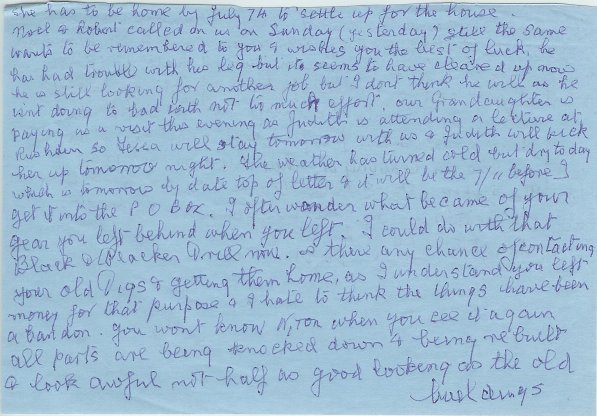 she has to be home by July 74 to settle up for the house
Noel & Robert called on us on Sunday (yesterday) still the same
wants to be remembered to you & wishes you the best of luck, he
has had trouble with his leg but it seems to have cleared up now
he is still looking for another job but I dont think he will as he
isnt doing to bad with not to much effort. our Grandaughter is
paying us a visit this evening as Judith is attending a lecture at
Rushden so Tessa will stay tomorrow with us & Judith will pick
her up tomorrow night. The weather has turned cold but dry today
which is tomorrow by date top of letter & it will be the 7/11 before I
get it into the P O Box. I often wonder what became of your
gear you left behind when you left. I could do with that
Black & Deacker Drill now. is there any chance of contacting
your old Digs & getting them home, as I understand you left
money for that purpose & I hate to think the things have been
abandon. you wont know N,Ton when you see it again
all parts are being knocked down & being rebuilt
& look awful not half as good looking as the old
buildings